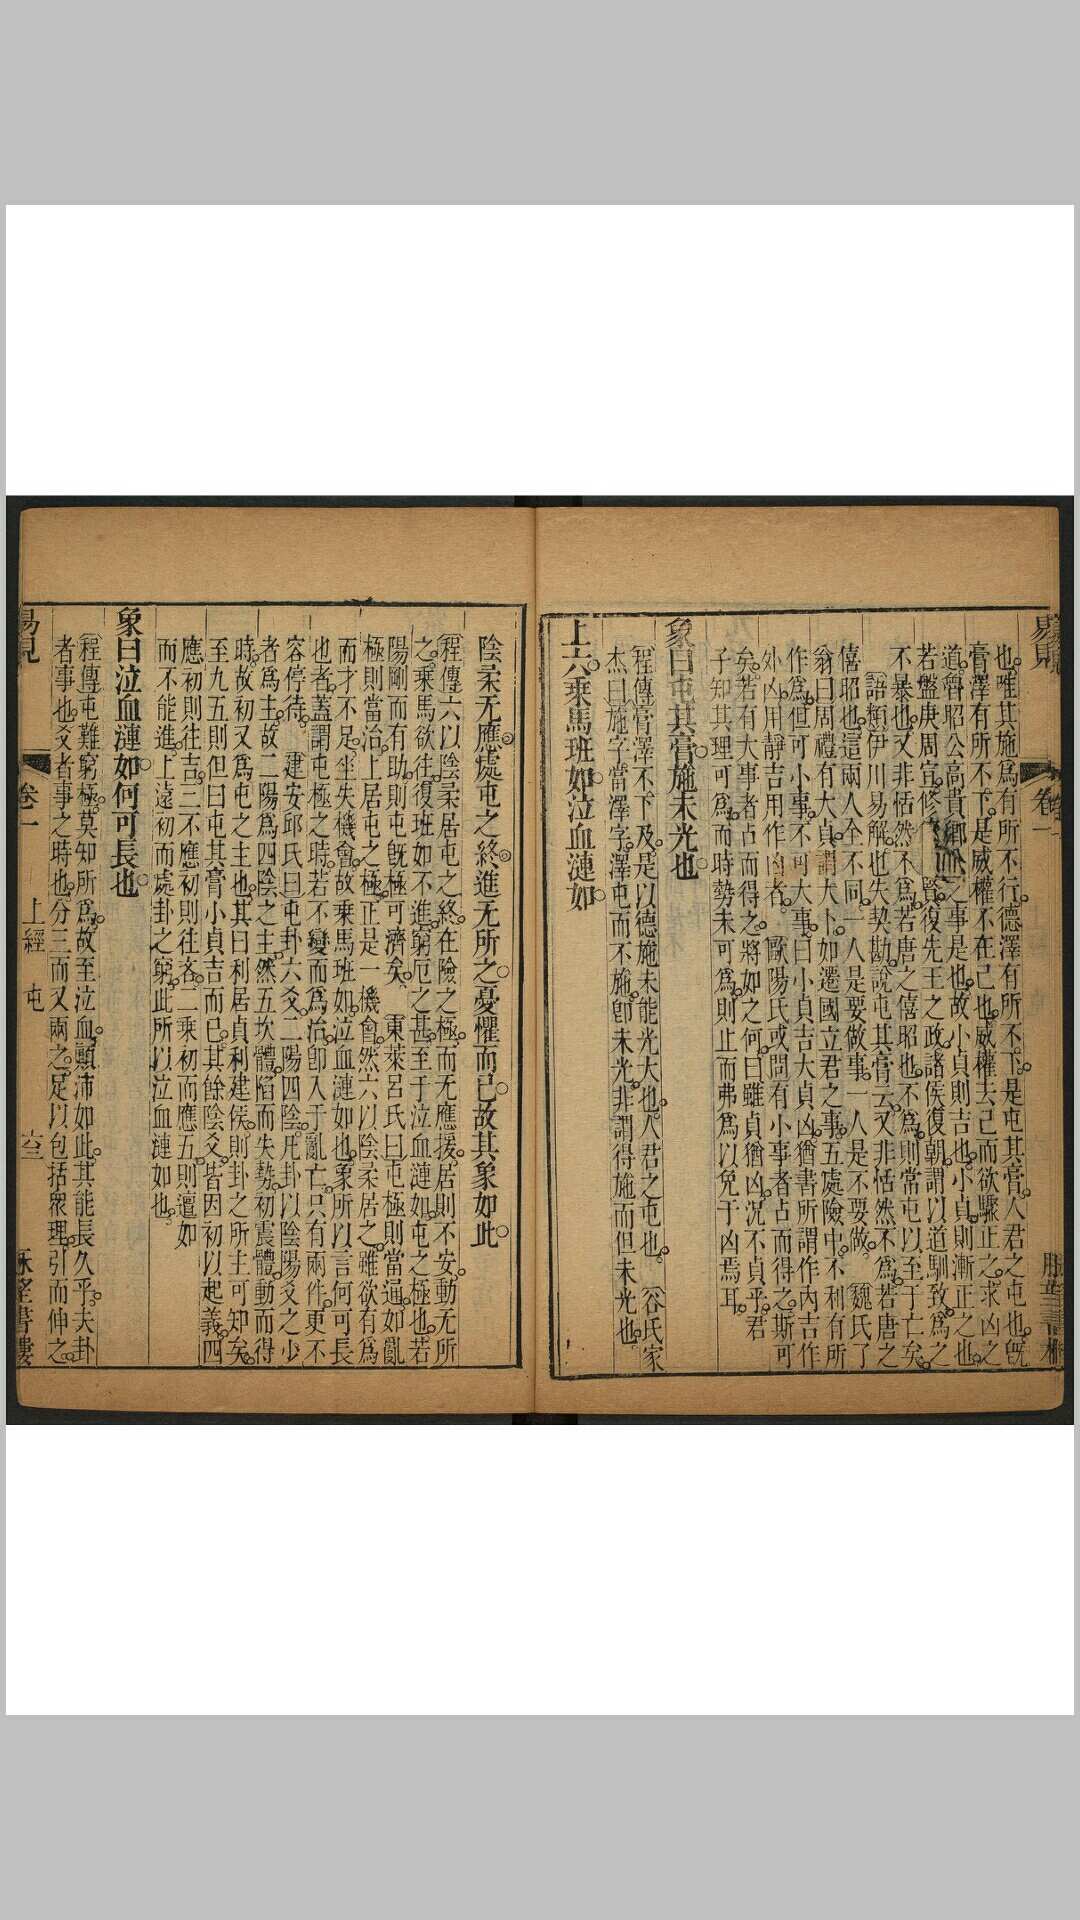 也唯其施爲有所不行德澤有所不下是屯其膏人君之屯也旣
膏澤有所不下是威權不在己也威權去己而欲驟正之求凶之
道魯昭公高貴鄉公之事是也故小貞則吉也小貞則漸正之也
若盤庚周宣修 賢復先王之政諸侯復朝謂以道馴致爲之
不暴也又非恬然不爲若唐之僖昭也不爲則常屯以至于亡矣
語類伊川易解也失契勘說屯其膏云又非恬然不爲若唐之
僖昭也這兩人全不同一人是要做事一人是不要做 魏氏了
翁曰周禮有大貞謂大卜如遷國立君之事五處險中不利有所
作爲但可小事不可大事曰小貞吉大貞凶猶書所謂作內吉作
外凶用靜吉用作凶者 歐陽氏或問有小事者占而得之斯可
矣若有大事者占而得之將如之何曰雖貞猶凶况不貞乎君
子知其理可爲而時勢未可爲則止而弗爲以免于凶焉耳
象曰屯其膏施未光也
程傳膏澤不下及是以德施未能光大也人君之屯也 谷氏家
杰曰施字當澤字澤屯而不施卽未光非謂得施而但未光也
上六乘馬班如泣血漣如
陰柔无應處屯之終進无所之憂懼而已故其象如此
程傳六以陰柔居屯之終在險之極而无應援居則不安動无所
之乘馬欲往復班如不進窮厄之甚至于泣血漣如屯之極也若
陽剛而有助則屯旣極可濟矣 東萊呂氏曰屯極則當通如亂
極則當治上居屯之極正是一機會然六以陰柔居之雖欲有爲
而才不足坐失機會故乘馬班如泣血漣如也象所以言何可長
也者蓋謂屯極之時若不變而爲治卽入于亂亡只有兩件更不
容停待 建安邱氏曰屯卦六爻二陽四陰凡卦以陰陽爻之少
者爲主故二陽爲四陰之主然五坎體陷而失勢初震體動而得
時故初又爲屯之主也其曰利居貞利建侯則卦之所主可知矣
至九五則但曰屯其膏小貞吉而已其餘陰爻皆因初以起義四
應初則往吉三不應初則往吝二乘初而應五則邅如
而不能進上遠初而處卦之窮此所以泣血漣如也
象曰泣血漣如何可長也
程傳屯難窮極莫知所爲故至泣血顛沛如此其能長久乎夫卦
者事也爻者事之時也分三而又兩之足以包括衆理引而伸之
卷一
上經 屯